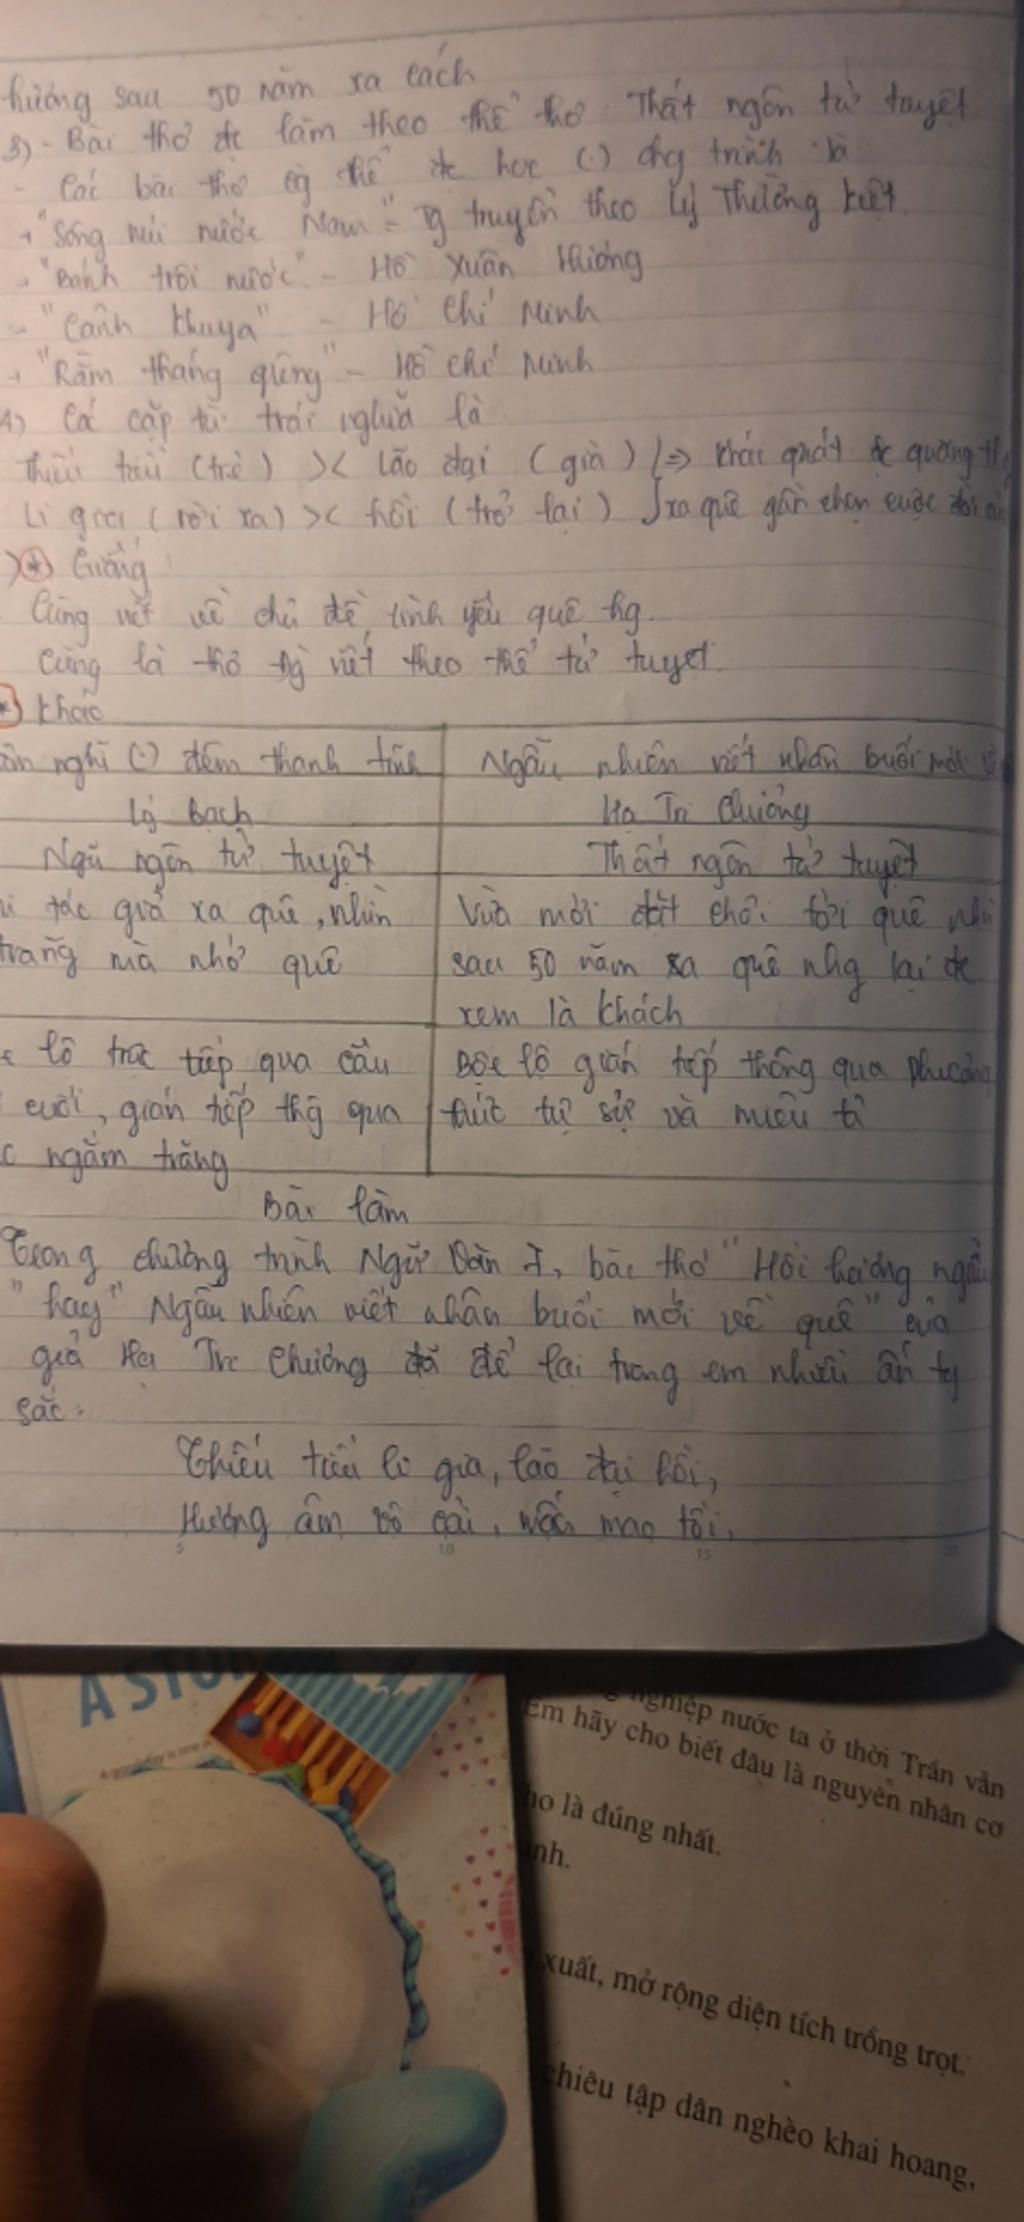 hương sau 50 năm xa cách
3) - Bài thơ đc làm theo thể thơ: Thất ngôn tứ tuyệt
- Các bài thơ cg thể đc học (.) chg trình là
+ "Sông núi nước Nam" - Tg truyền theo Lý Thường Kiệt.
+ "Bánh trôi nước" - Hồ Xuân Hương
+ "Cảnh khuya" - Hồ Chí Minh
+ "Rằm tháng giêng" - Hồ Chí Minh
4) Cá cặp từ trái nghĩa là
Thiếu tiểu (trẻ) >< lão đại (già) } => khái quát đc quãng
Li gia (rời xa) >< hồi (trở lại) } xa quê gần chọn cuộc đời
* Giống:
Cùng viết về chủ đề tình yêu quê hg.
Cùng là thơ viết theo thể tứ tuyệt.
* Khác
nghĩ (.) đêm thanh tĩnh | Ngẫu nhiên viết nhân buổi mới
Lý Bạch | Hạ Tri Chương
Ngũ ngôn tứ tuyệt | Thất ngôn tứ tuyệt
tác giả xa quê, nhìn | Vừa mới đặt chân tới quê
trăng mà nhớ quê | sau 50 năm xa quê nhg lại đc
xem là khách
lộ trực tiếp qua câu | Bộc lộ gián tiếp thông qua phương
cuối, gián tiếp thg qua | thức tự sự và miêu tả
ngắm trăng
Bài làm
Trong chương trình Ngữ Văn 7, bài thơ "Hồi hương ngẫu
" hay "Ngẫu nhiên viết nhân buổi mới về quê" của
giả Hạ Tri Chương đã để lại trong em nhiều ấn tg
sắc:
Thiếu tiểu li gia, lão đại hồi,
Hương âm vô cải, mấn mao tồi.
5 10 15 20
A STU
nghiệp nước ta ở thời Trần vẫn
Em hãy cho biết đâu là nguyên nhân cơ
ho là đúng nhất.
xuất, mở rộng diện tích trồng trọt.
chiêu tập dân nghèo khai hoang,